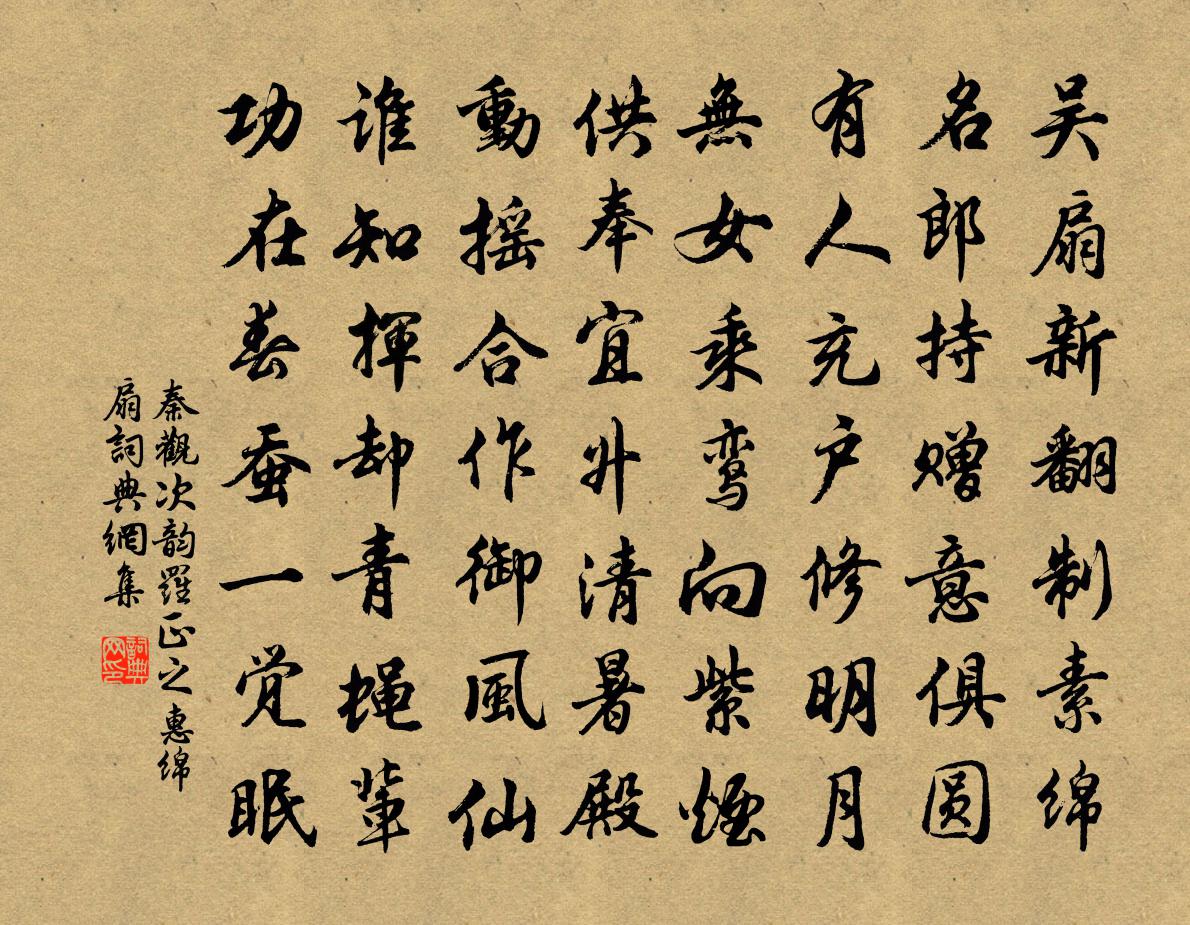 吴扇新翻制素绵
名郎持赠意俱圆
有人充户修明月
無女乘鸾向紫煙
供奉宜升清暑殿
動摇合作御風仙
谁知揮却青蝇輩
功在春蚕一觉眠
秦觀次韵羅正之惠绵
扇詞典網集
詞典网印